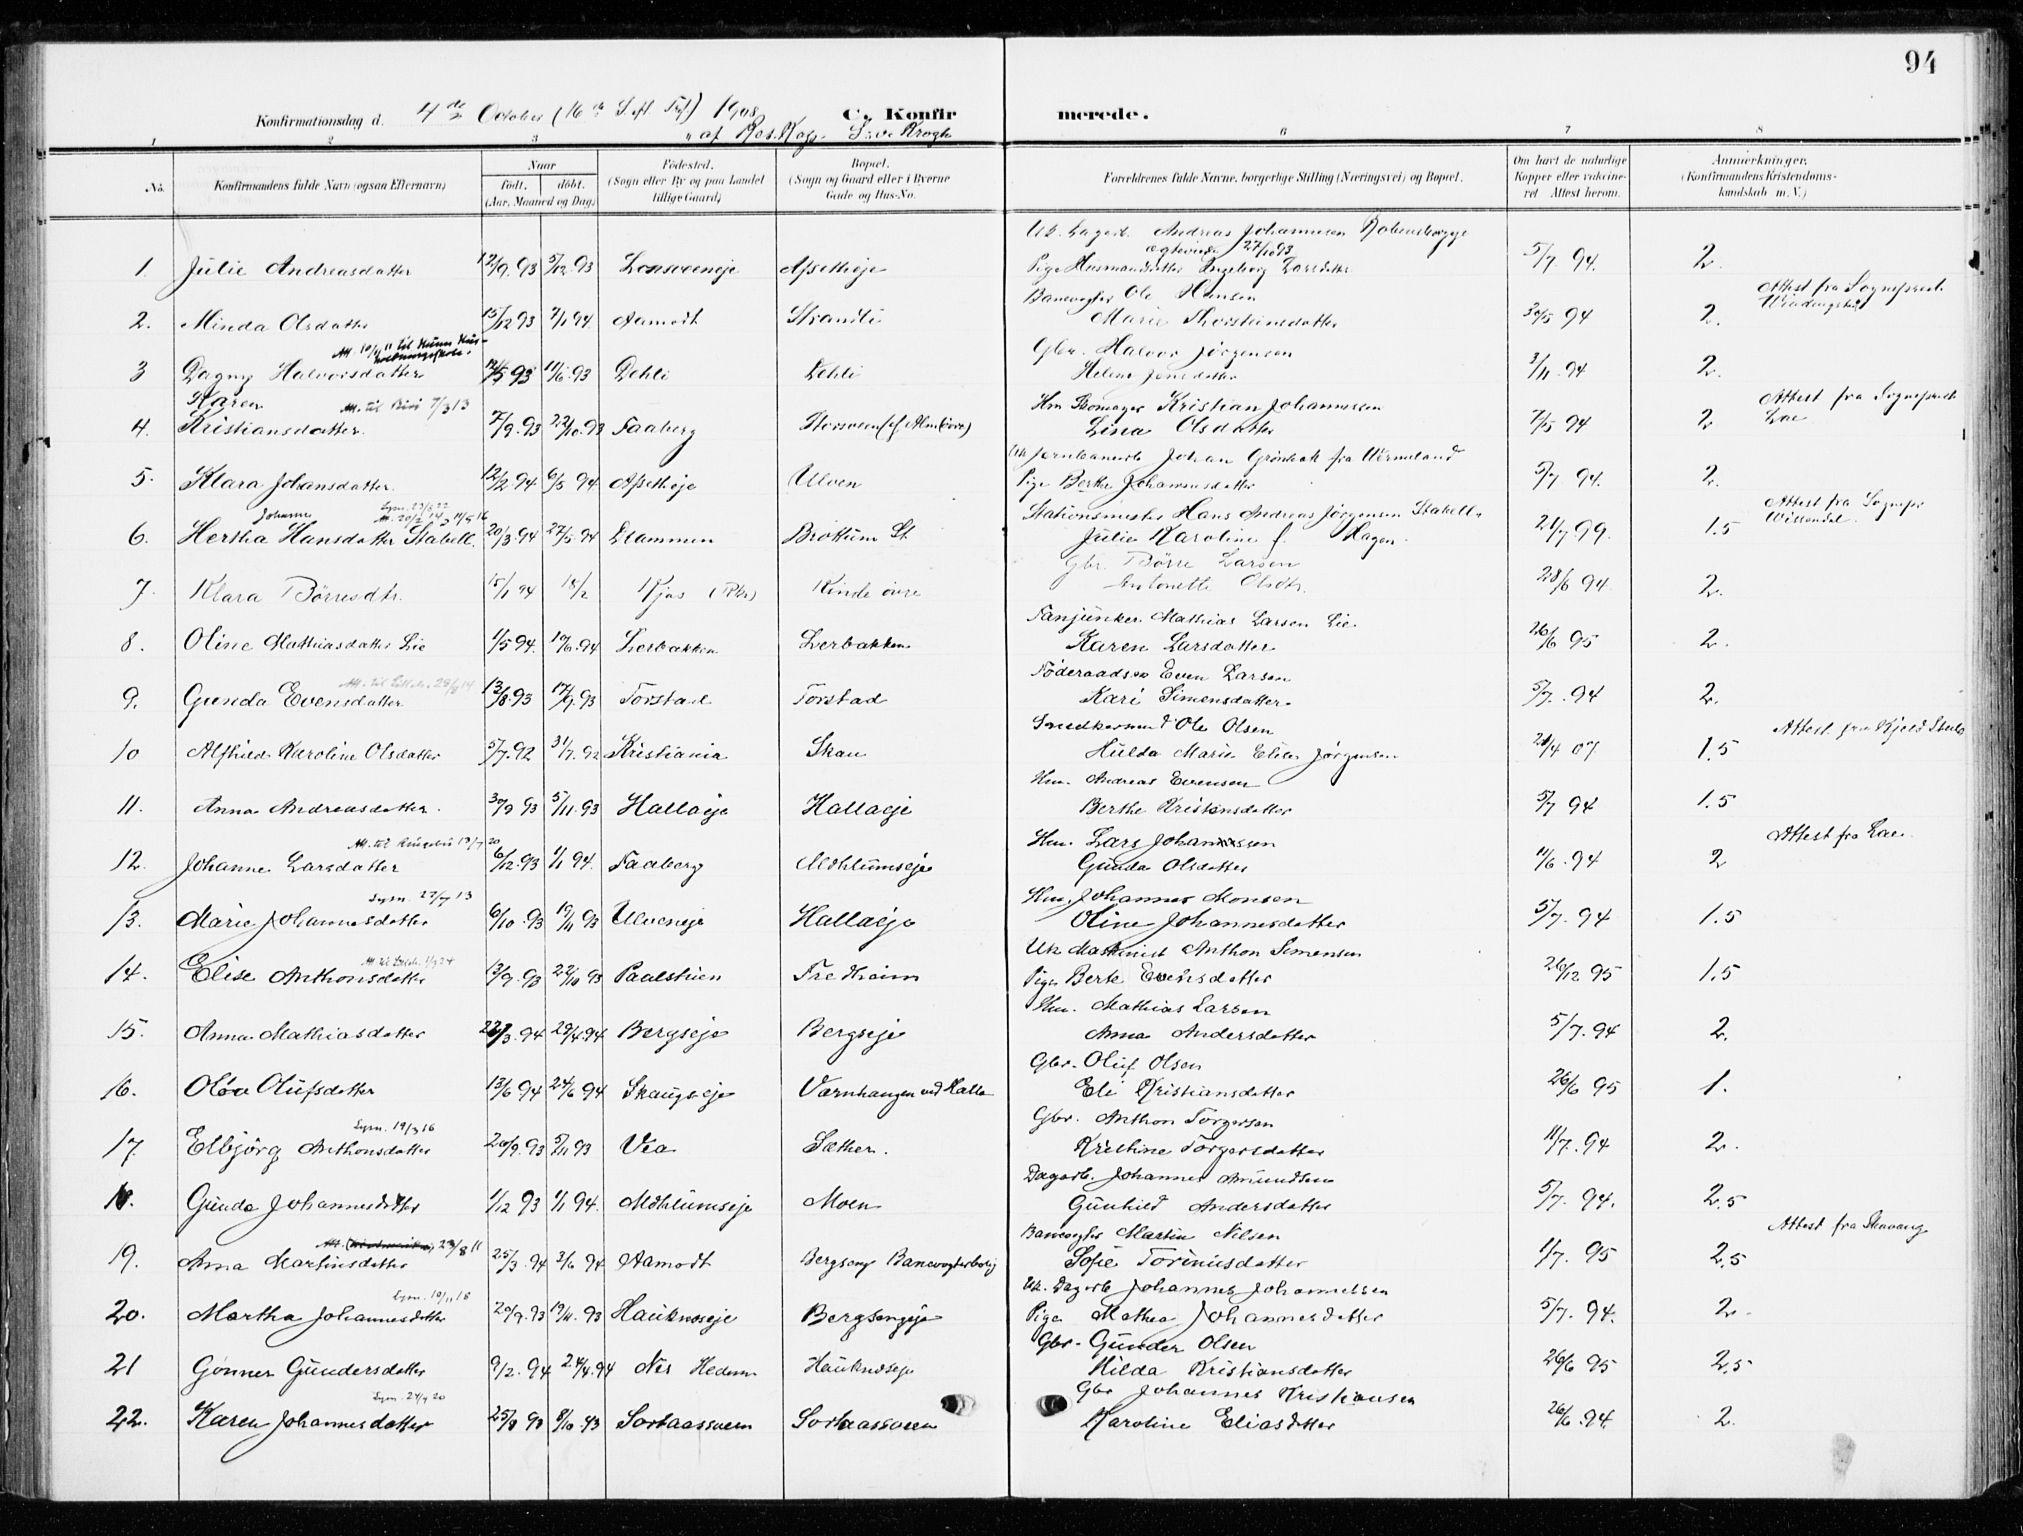 94
Konfirmationsdag d. 4de October (16de S. eft. Tref) 1908 C. Konfirmerede.
af Res. Kap. Krogh
1 2 3 6 7 8
No. Konfirmandens fulde Navn (ogsaa Efternavn) Naar født. døbt. (Aar, Maaned og Dag) Fødested. (Sogn eller By og paa Landet tillige Gaard) Bopæl. (Sogn og Gaard eller i Byerne Gade og Hus-No. Forældrenes fulde Navne, borgerlige Stilling (Næringsvei) og Bopæl. Om havt de naturlige Kopper eller vaccineret Attest herom. Anmærkninger. (Konfirmandens Kristendomskundskab m. V.)
Uk. Dagarb. Andreas Johannesen
1. Julie Andreasdatter 12/9.93 3/12.93 Lonsveeneje Afsetheje Pige Husmandsdatter Ingeborg Larsdatter 5/7.94. 2.
Banevogter Ole Hansen Attest fra Sogneprest
2. Minda Olsdatter 15/12 93 7/1 94. Aamodt Strandli Marie Thorsteinsdatter 30/5 94 2.
Gbr. Halvor Jørgensen
3 Dagny Halvorsdatter 12/5 93 11/6.93 Dehli Dehli Helene Jensdatter 3/11.94 2.
Karen Att. til Biri 7/3 13 Hm Skomager Kristian Johannessen Attest fra Sogneprest
4. Kristiansdatter. 7/9.93 22/10.93 Faaberg Lina Olsdatter 7/5 94 2 Lae
Uk Jernbanearb Johan Grönbak fra Wermeland
5. Klara Johansdatter. 12/2 94 6/5 94 Afsetheje Ulven Pige Berthe Johannesdatter 5/7 94. 2.
Johanne Stationsmester Hans Andreas Jørgensen Stabell Attest fra Sognepr
6. Hertha Hansdatter Stabell. 20/3.94 27/5.94 Brøttum St. Julie Karoline f. Hagen. 21/7 99. 1.5
Gbr. Børre Larsen
7. Klara Børresdtr. 15/1 94 18/2 Kjos Kinde övre Antonette Olsdtr. 28/6 94. 2.
Fanjunker Mathias Larsen Lie
8. Oline Mathiasdatter Lie 1/5 94. 10/6.94 Lerbakken Lerbakken Karen Larsdatter 26/6 95 2.
Föderaadsm Even Larsen
9. Gunda Evensdatter 13/8.93 17/9.93 Torstad Torstad Kari Simensdatter 5/7.94 2.
Snedkersvend Ole Olsen Attest fra Kjeld Stub
10 Alfhild Karoline Olsdatter 5/7.92 31/7.92 Kristiania Skau Hulda Marie Elise Jørgensen 21/4 07 1.5
Hm. Andreas Evensen
11. Anna Andreasdatter. 30/9 93 5/11.93 Hallaeje Hallaeje Berthe Kristensdatter 5/7 94 1.5
Att. til Ringebu 13/7 20 Hm. Lars Johannessen Attest fra Lae.
12. Johanne Larsdatter 6/12.93 1/1 94. Faaberg Mæhlumseje Gunda Olsdatter 11/6.94 2
Lysn. 27/7 13 Hm. Johannes Monsen
13. Marie Johannesdatter 6/10.93 19/11 93 Ulveneje Hallaeje Oline Johannesdatter 5/7.94 1.5
Uk Maskinist Anthon Simensen
14. Elise Anthonsdatter 13/9.93 22/10 93 Paulstuen Fredheim Pige Berte Evensdatter 26/12 95 1.5
Hm. Mathias Larsen
15. Anna Mathiasdatter 22/3.94 29/4.94 Bergseje Bergseje Anna Andersdatter 5/7.94 2.
Gbr. Oluf Olsen
16. Olea Olufsdatter 13/6 94 24/6 94 Skaugseje Varnhaugen ved Halla Eli Kristiansdatter 26/6 95 1.
Lysn. 19/3 16 Gbr. Anthon Torgersen
17 Elbjörg Anthonsdatter 20/9.93 5/11 93 Vea Sæther. Kristine Torgersdatter 11/7.94 2.
Dagarb. Johannes Amundsen
18. Gunda Johannesdatter 1/12 93 1/1 94. Mæhlumseje Moen Gunhild Andersdatter 5/7.94. 2.5
23/8 11 Banevogter Martin Nilsen Attest fra Stavang
19. Anna Martinsdatter 25/3.94 3/6 94 Aamodt Bergseng Banevogterbolig Sofie Torinusdatter 1/7.95 2.5
Lysn. 10/11 16 Uk. Dagarb Johannes Johannessen
20. Martha Johannesdatter 20/9.93 19/11.93 Haukneseje Bergsengeje Pige Mathea Johannesdatter 5/7.94. 2
Gbr. Gunder Olsen
21 Gønner Gundersdatter 9/2.94 24/4.94 Nes Hedem Haukneseje Hilda Kristiansdatter 26/6 95 2.5
Lysn. 24/7 20 Gbr Johannes Kristiansen
22. Karen Johannesdatter 25/8 93 8/10.93 Sorteaassveen Sorteaassveen Karoline Eliasdatter 26/6.94. 2.